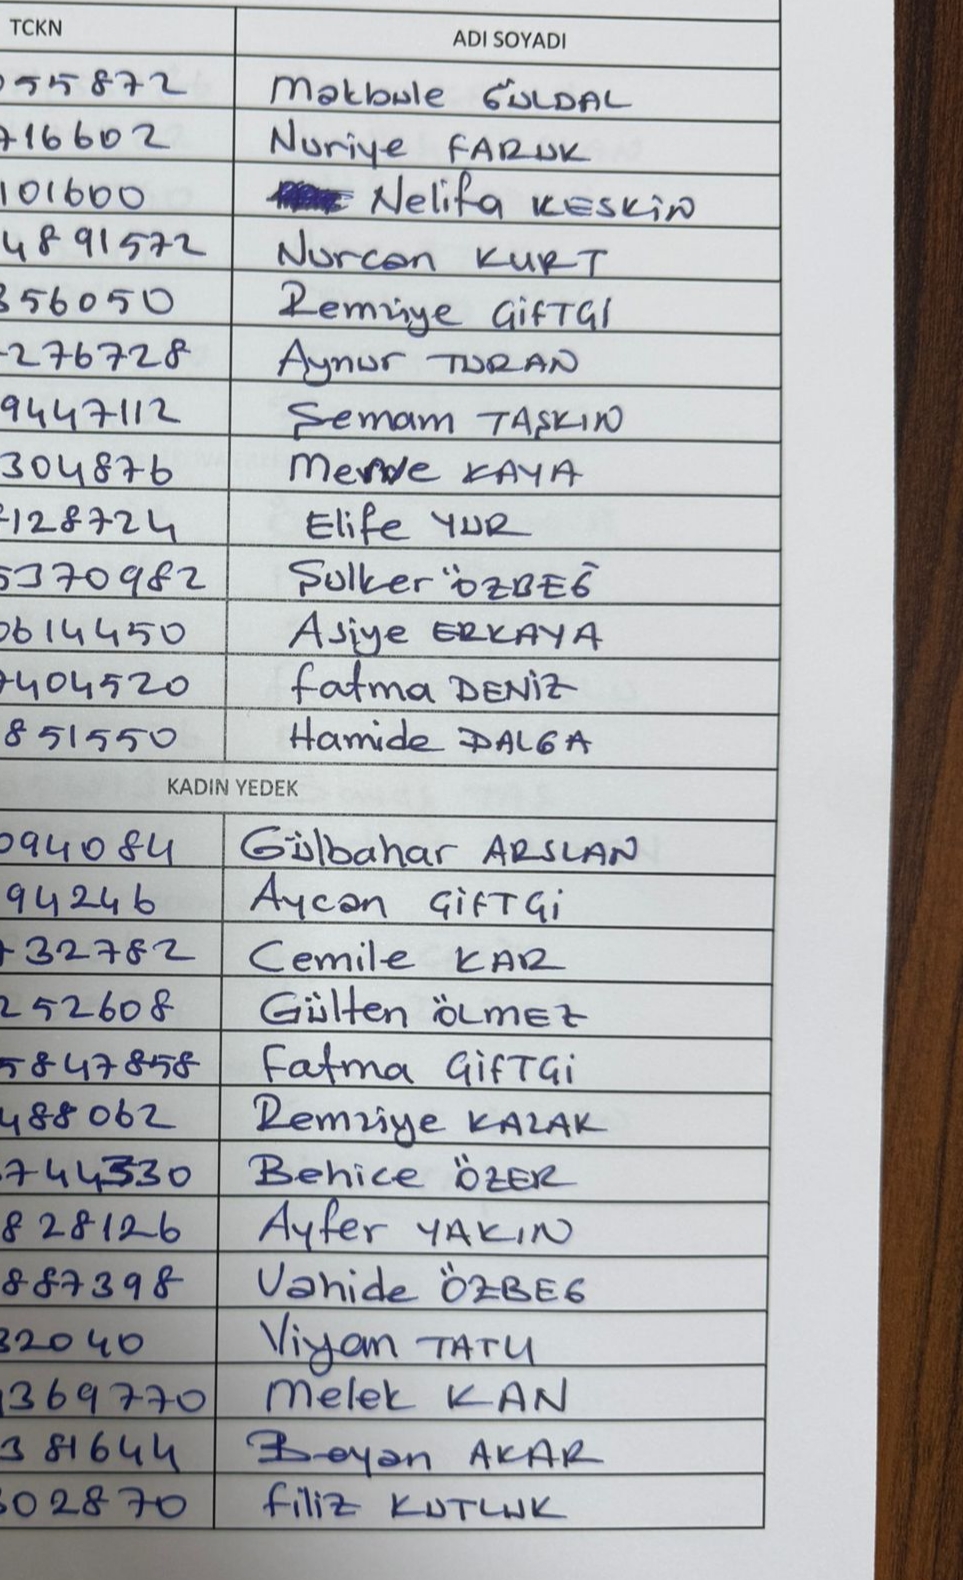 TCKN ADI SOYADI
55872 Makbule GÜLDAL
716602 Nuriye FARUK
101600 Nelifa KESKİN
4891572 Nurcan KURT
356050 Remziye ÇİFTÇİ
276728 Aynur TURAN
9447112 Şemam TAŞKIN
304876 Merve KAYA
128724 Elife YUR
5370982 Şulker ÖZBEĞ
0614450 Asiye ERKAYA
7404520 Fatma DENİZ
851550 Hamide DALGA
KADIN YEDEK
094084 Gülbahar ARSLAN
94246 Aycan ÇİFTÇİ
732782 Cemile KAR
252608 Gülten ÖLMEZ
5847858 Fatma ÇİFTÇİ
488062 Remziye KAZAK
744330 Behice ÖZER
828126 Ayfer YAKIN
887398 Vahide ÖZBEG
32040 Viyan TATLI
369770 Melek KAN
381644 Beyan AKAR
302870 Filiz KUTLUK